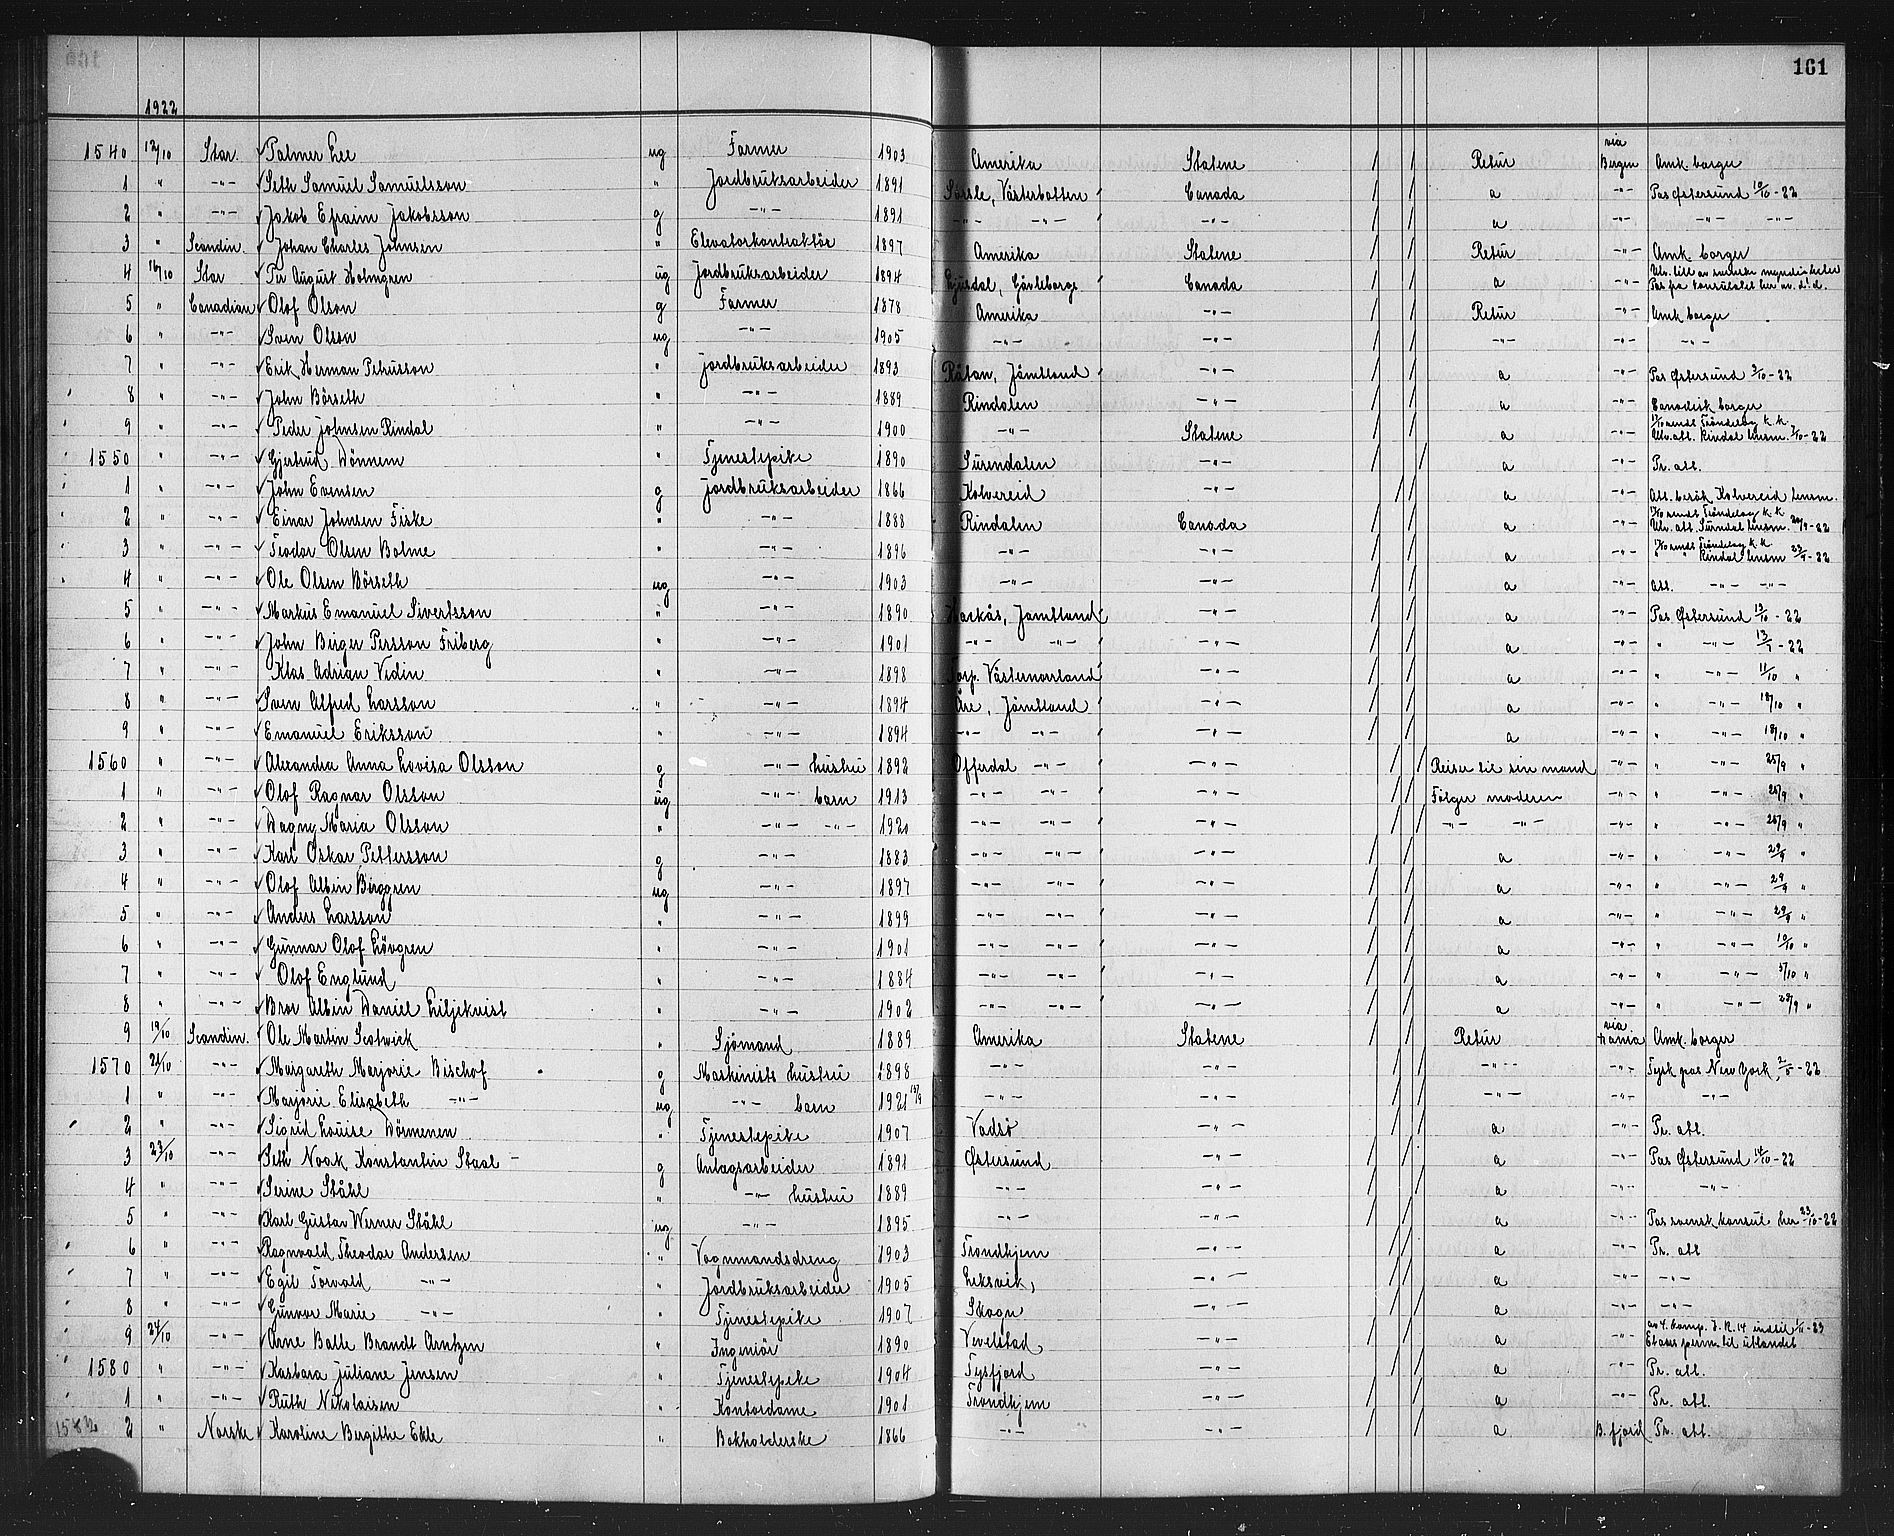 161
1922
1540 12/10 Star. Palmer Lee ug Farmer 1903 Amerika Statene Retur via Bergen Amk. borger
1 " -"- Seth Samuel Samuelsson " Jordbruksarbeider 1891 Sorsle, Västerbotten Canada a -"- Pas Østersund 10/10-22
2 " -"- Jakob Efraim Jakobsson g -"- 1891 -"- -"- -"- a -"- -"- -"-
3 " Scandin. Johan Charles Johnsen " Elevatorkontraktör 1897 Amerika Statene Retur -"- Amk. borger
4 16/10 Star Per August Holmgren ug Jordbruksarbeider 1894 Ljusdal, Gävleborgs Canada a -"- Utv. till. av svenske myndigheter Pas fra konsulatet her av. d. d.
5 " Canadian Olof Olson g Farmer 1878 Amerika -"- Retur Amk borger
6 " -"- Sven Olson ug -"- 1905 -"- -"- -"- -"-
7 " -"- Erik Herman Petrusson " jordbruksarbeider 1893 Rätan, Jämtland -"- a -"- Pas Østersund 3/10-22
8 " -"- John Börseth " -"- 1889 Rindalen -"- a -"- Canadisk borger
9 " -"- Peder Johnsen Rindal " -"- 1900 -"- Statene a -"- 17/10 sendt Tröndelag K. K. Utv. att. Rindal lensm. 7/10-22
1550 " -"- Gjertrud Dönnem " Tjenestepike 1890 Surendalen -"- a -"- Pr. att.
1 " -"- John Evensen g jordbruksarbeider 1866 Kolvereid -"- a -"- Att. besök Kolvereid lensm.
2 " -"- Einar Johnsen Fiske " -"- 1888 Rindalen Canada a -"- 17/10 sendt Tröndelag K. K. Utv. att. Surndal lensm. 20/9-22
3 " -"- Teodor Olsen Bolme " -"- 1896 -"- -"- a -"- 17/10 sendt Tröndelag K. K. Rindal lensm 23/9-22
4 " -"- Ole Olsen Börseth ug -"- 1903 -"- -"- a -"- Att. -"- -"-
5 " -"- Markus Emanuel Sivertsson " -"- 1890 Hackås, Jämtland -"- a -"- Pas Østersund 13/10-22
6 " -"- John Birger Persson Friberg " -"- 1901 -"- -"- -"- a -"- " -"- 13/7-22
7 " -"- Klas Adrian Vidin " -"- 1898 Torp. Västernorrland -"- a -"- " -"- 11/10 "
8 " -"- Sven Alfred Larsson " -"- 1894 Åre, Jämtland -"- a -"- " -"- 18/10 "
9 " -"- Emanuel Eriksson " -"- 1894 -"- -"- -"- a -"- " -"- 18/10 "
1560 " -"- Alexandra Anna Lovisa Olsson g -"- hustru 1892 Offerdal -"- -"- Reiser til sin mand -"- " -"- 25/9 "
1 " -"- Olof Ragnar Olsson ug -"- barn 1913 -"- -"- -"- Følger moderen -"- " -"- 25/9 "
2 " -"- Dagny Maria Olsson " -"- -"- 1920 -"- -"- -"- -"- -"- -"- " -"- 25/9 "
3 " -"- Karl Oskar Pettersson g -"- 1883 -"- -"- -"- a -"- " -"- 29/9 "
4 " -"- Olof Albin Berggren ug -"- 1897 -"- -"- -"- a -"- " -"- 29/9 "
5 " -"- Anders Larsson " -"- 1899 -"- -"- -"- a -"- " -"- 29/9 "
6 " -"- Gunnar Olof Lövgren " -"- 1901 -"- -"- -"- a -"- " -"- 10/10 "
7 " -"- Olof Englund " -"- 1884 -"- -"- -"- a -"- " -"- 5/10 "
8 " -"- Bror Albin Daniel Liljekvist " -"- 1902 -"- -"- -"- a -"- " -"- 28/9 "
9 19/10 Scandin. Ole Martin Scotwick " Sjömand 1889 Amerika Statene Retur via Kania Amk. borger
1570 21/10 -"- Margareth Marjorie Bischof g Maskinists hustru 1898 -"- -"- -"- -"- Tysk pas New York, 2/5-22
1 " -"- Marjorie Elisabeth -"- ug -"- barn 1921 -"- -"- -"- -"- -"-
2 " -"- Sigrid Louise Dönnenen " Tjenestepike 1907 Vadsö -"- a -"- Pr. att.
3 23/10 -"- Seth Noak Konstantin Staal g Anlagsarbeider 1891 Østersund -"- a -"- Pas Østersund 14/10-22
4 " -"- Serine Ståhl " -"- hustru 1889 -"- -"- a -"- -"-
5 " -"- Karl Gustav Werner Ståhl ug -"- 1895 -"- -"- a -"- Pas svensk konsul her 23/10-22
6 " -"- Ragnvald Theodor Andersen " Vognmandsdreng 1903 Trondhjem -"- a -"- Pr. att
7 " -"- Egil Torvald -"- " Jordbruksarbeider 1905 Leksvik, -"- a -"- -"-
8 " -"- Gunvor Marie -"- " Tjenestepike 1907 Skogn -"- a -"- -"-
9 24/10 -"- Arne Balle Brandt Arntzen " Ingeniör 1890 Vevelstad -"- a -"- av 4. komp. I. R. 14 indtil 1/11-23 Et aars perm. til utlandet
1580 " -"- Kasbara Juliane Jensen " Tjenestepike 1904 Tysfjord -"- a -"- Pr. att.
1 " -"- Ruth Nikolaisen " Kontordame 1901 Trondhjem -"- a -"- Pr. att.
1582 2 " Norske Karoline Bergithe Ekle " Bokholderske 1866 -"- -"- a B.fjord Pr. att.